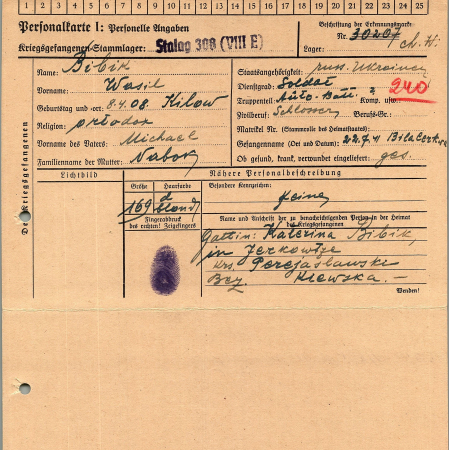 1 2 3 4 5 6 7 8 9 10 11 12 13 14 15 16 17 18 19 20 21 22 23 24 25
Personalkarte I: Personelle Angaben
Kriegsgefangenen-Stammlager: Stalag 308 (VIII E)
Beschriftung der Erkennungsmarke
Nr. 30207
Lager:
Des Kriegsgefangenen
Name: Bibik
Vorname: Wasil
Geburtstag und -ort: 8.4.08. Kilow
Religion: ortodox
Vorname des Vaters: Michael
Familienname der Mutter: Nabor
Staatsangehörigkeit: russ. Ukrainer
Dienstgrad: Soldat
Truppenteil: Auto-Batl. 2 Komp. usw.
Zivilberuf: Schlosser Berufs-Gr.:
240
Matrikel Nr. (Stammrolle des Heimatstaates):
Gefangennahme (Ort und Datum): 22.7.41
Ob gesund, krank, verwundet eingeliefert: ges.
Lichtbild
Nähere Personalbeschreibung
Größe Haarfarbe
169 d. blond
Besondere Kennzeichen:
Keine
Fingerabdruck
des rechten! Zeigefingers
Name und Anschrift der zu benachrichtigenden Person in der Heimat
des Kriegsgefangenen
Gattin: Katerina Bibik,
in Jerkowtze
Krs. Perejaslawski
Bez. Kiewska. —
Wenden!